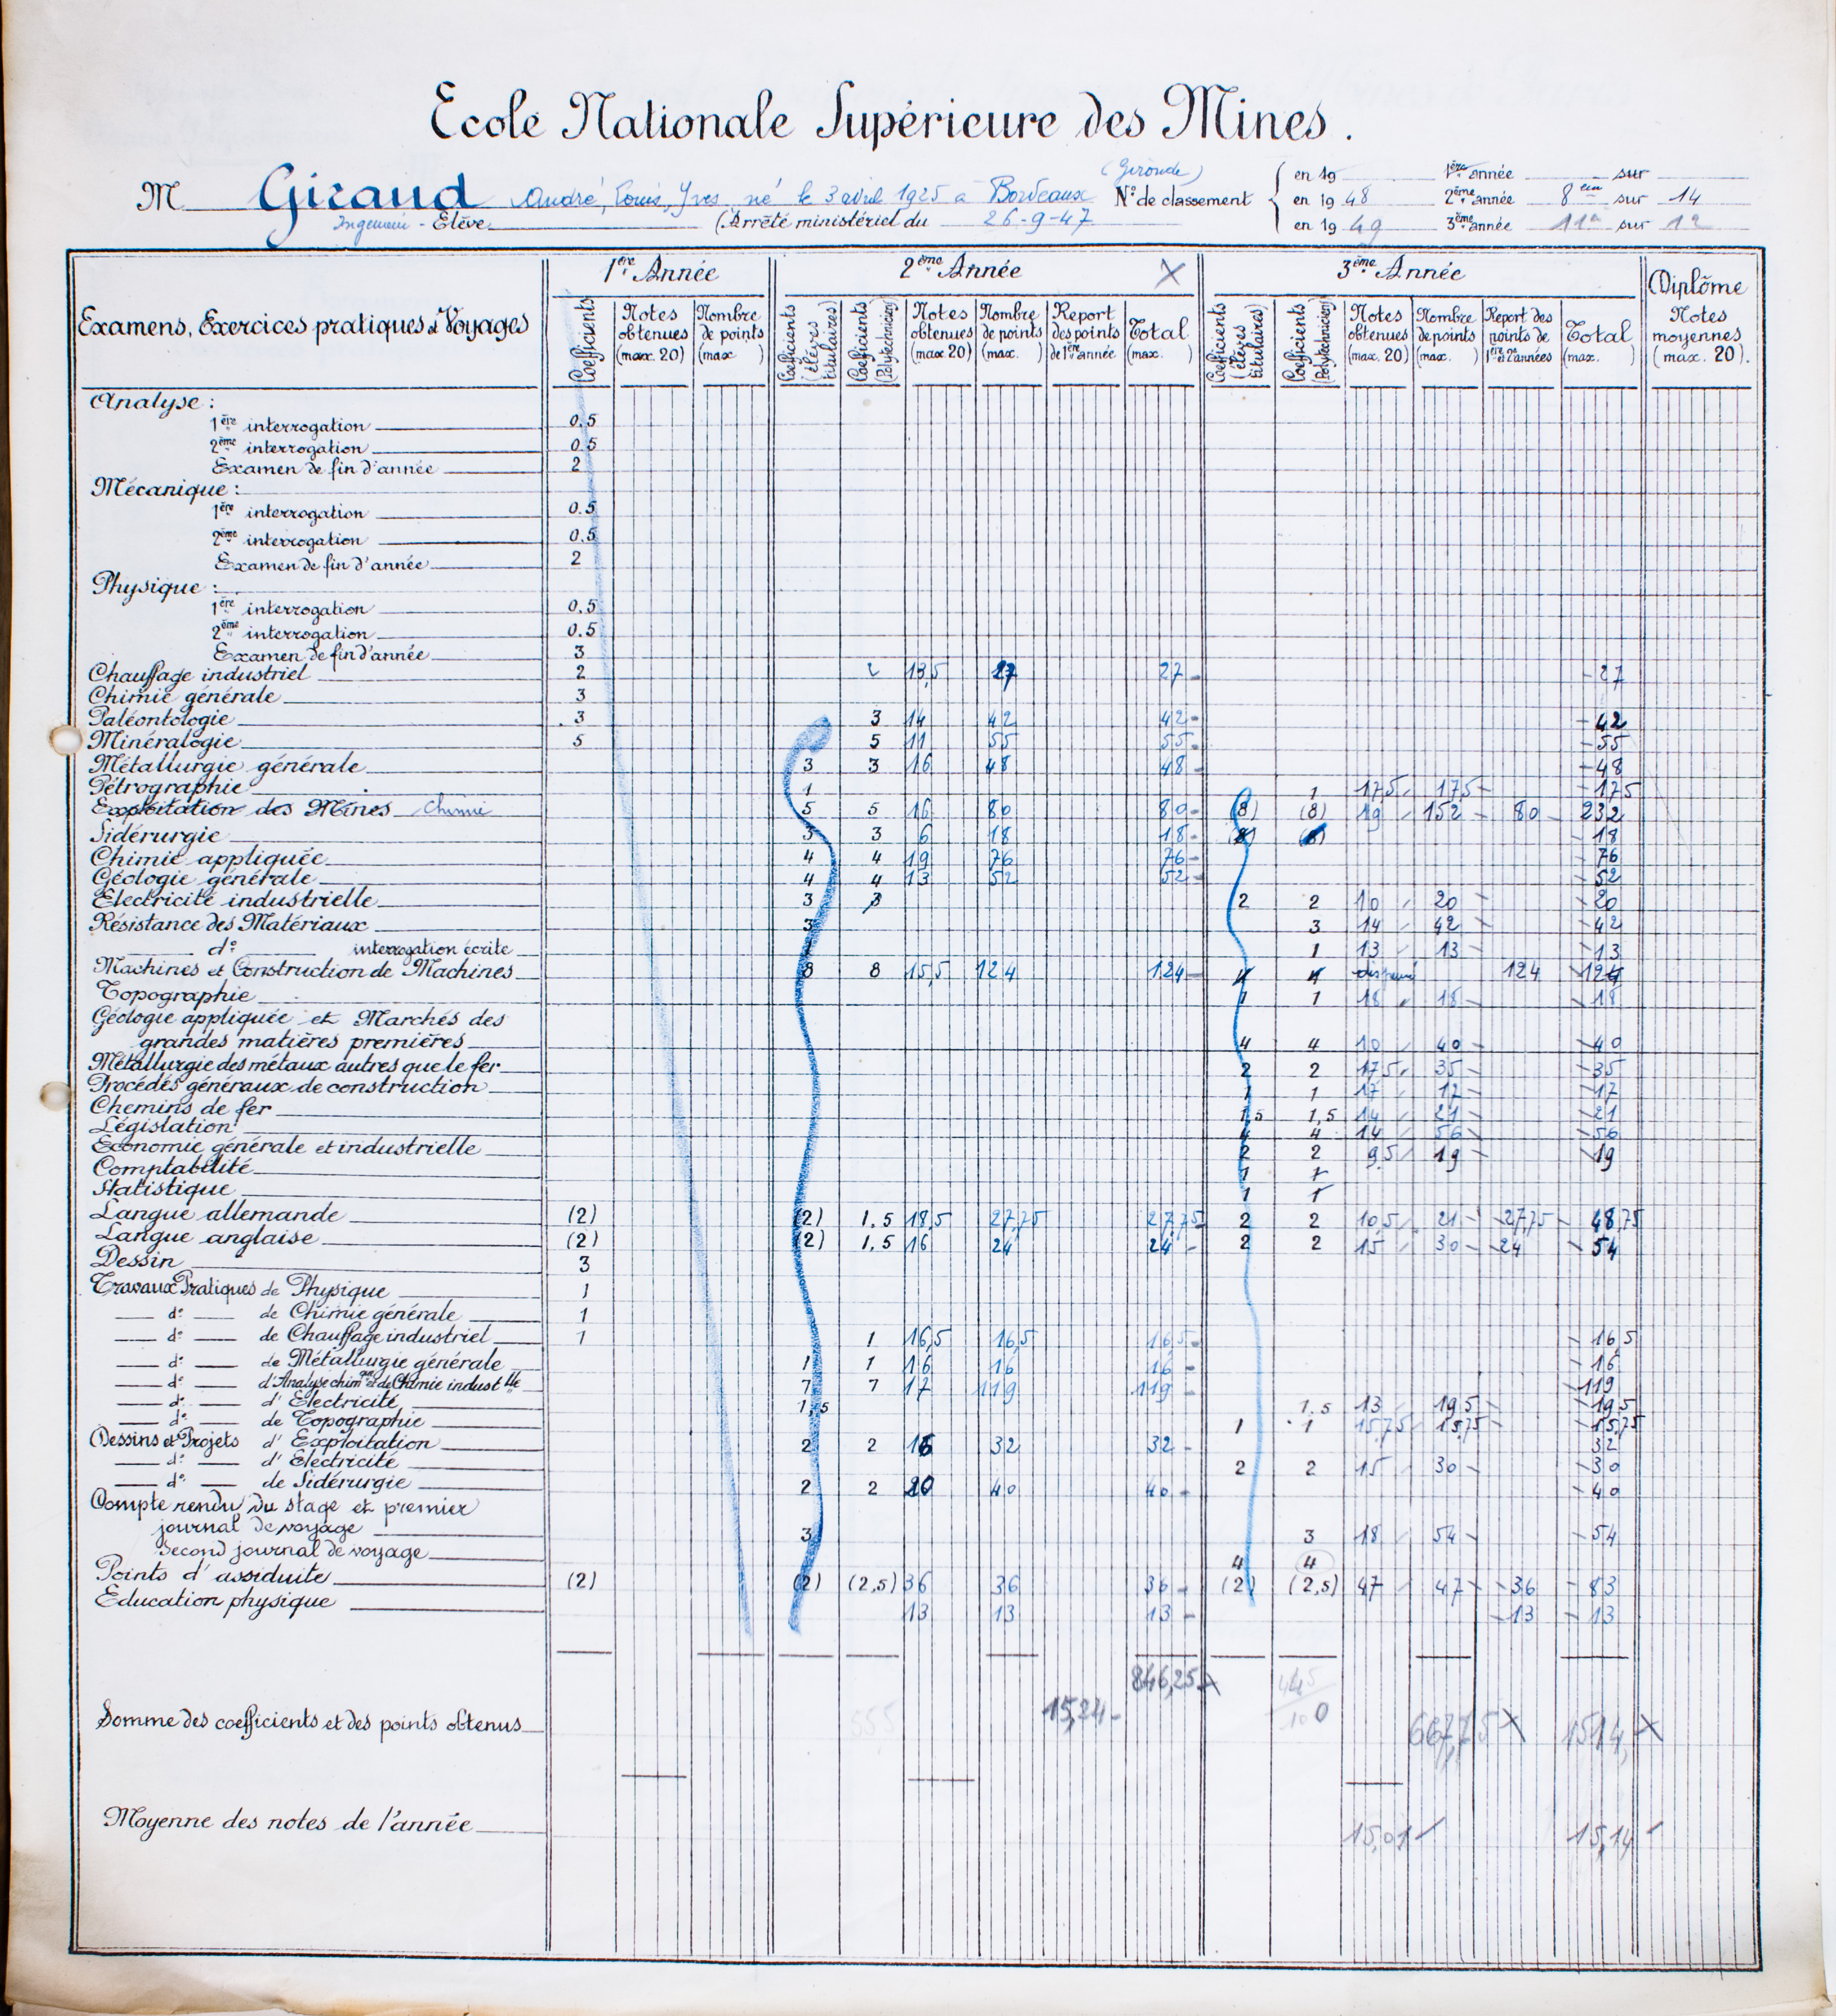 Ecole Nationale Supérieure des Mines.
M Giraud André, Louis, Yves né le 3 avril 1925 à Bordeaux (Gironde)
Ingénieur - Elève (Arrêté ministériel du 26-9-47
N° de classement
en 19 1ère année sur
en 1948 2ème année 8 em sur 14
en 1949 3ème année 11e sur 12
Examens, Exercices pratiques et Voyages
1ère Année 2ème Année X 3ème Année Diplôme
Coefficients Notes obtenues (max. 20) Nombre de points (max )
Coefficients (élèves titulaires) Coefficients (Polytechniciens) Notes obtenues (max 20) Nombre de points (max. ) Report des points de 1ère année Total (max. )
Coefficients (élèves titulaires) Coefficients (Polytechniciens) Notes obtenues (max. 20) Nombre de points (max. ) Report des points de 1ère et 2e années Total (max. )
Notes moyennes (max. 20).
Analyse :
1ère interrogation 0.5
2ème interrogation 0.5
Examen de fin d'année 2
Mécanique :
1ère interrogation 0.5
2ème interrogation 0.5
Examen de fin d'année 2
Physique :
1ère interrogation 0.5
2ème interrogation 0.5
Examen de fin d'année 3
Chauffage industriel 2 2 13,5 27 27 27
Chimie générale 3
Paléontologie 3 3 14 42 42 42
Minéralogie 5 5 11 55 55 55
Métallurgie générale 3 3 16 48 48 48
Pétrographie 1 1 17,5 17,5 17,5
Exploitation des Mines Chimie 5 5 16 80 80 (8) (8) 19 152 80 232
Sidérurgie 3 3 6 18 18 18
Chimie appliquée 4 4 19 76 76 76
Géologie générale 4 4 13 52 52 52
Electricité industrielle 3 3 2 2 10 20 20
Résistance des Matériaux 3 3 14 42 42
d° interrogation écrite 1 13 13 13
Machines et Construction de Machines 8 8 15,5 124 124 4 4 124 124
Topographie 1 1 18 18 18
Géologie appliquée et Marchés des
grandes matières premières 4 4 10 40 40
Métallurgie des métaux autres que le fer 2 2 17,5 35 35
Procédés généraux de construction 1 1 17 17 17
Chemins de fer 1,5 1,5 14 21 21
Législation 4 4 14 56 56
Economie générale et industrielle 2 2 9,5 19 19
Comptabilité 1 1
Statistique 1 1
Langue allemande (2) (2) 1,5 18,5 27,75 27,75 2 2 10,5 21 27,75 48,75
Langue anglaise (2) (2) 1,5 16 24 24 2 2 15 30 24 54
Dessin 3
Travaux Pratiques de Physique 1
d° de Chimie générale 1
d° de Chauffage industriel 1 1 16,5 16,5 16,5 16,5
d° de Métallurgie générale 1 1 16 16 16 16
d° d'Analyse chimque et de Chimie industlle 7 7 17 119 119 119
d° d'Electricité 1,5 1,5 13 19,5 19,5
d° de Topographie 1 1 15,75 15,75 15,75
Dessins et Projets d'Exploitation 2 2 16 32 32 32
d° d'Electricité 2 2 15 30 30
d° de Sidérurgie 2 2 20 40 40 40
Compte rendu du stage et premier
journal de voyage 3 3 18 54 54
Second journal de voyage 4 4
Points d'assiduité (2) (2) (2,5) 36 36 36 (2) (2,5) 47 47 36 83
Education physique 13 13 13 13 13
Somme des coefficients et des points obtenus 555 15,24 846,25 X 445 100 667,75 X 1514, X
Moyenne des notes de l'année 15,01 15,14